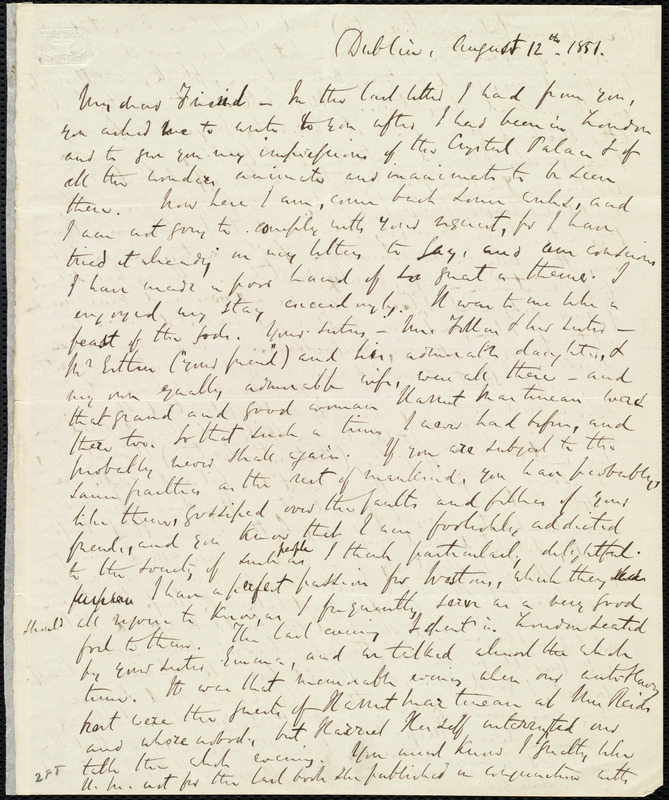 Dublin, August 12th. 1851.
My dear Friend – In the last letter I had from you,
you asked me to write to you after I had been in London
and to give you my impressions of the Crystal Palace & of
all the wonders animate and inanimate to be seen
there. Now here I am, come back some weeks, and
I am not going to comply with your request, for I have
tried it already in my letters to Gay, and am conscious
I have made a poor hand of so great a theme. I
enjoyed my stay exceedingly. It was to me like a
feast of the gods. Your sisters – Mrs Follen & her sister –
Mr Estlin ("your friend") and his admirable daughter, &
my own equally admirable wife, were all there – and
that grand and good woman Harriet Martineau was
there too. So that such a time I never had before, and
probably never shall again. If you are subject to the
same frailties as the rest of mankind, you have probably,
like them, gossiped over the faults and foibles of your
friends, and you know that I am foolishly addicted
to the society of such people as I think particularly delightful.
I have a perfect passion for Westons, which they
should all rejoice to know, as I frequently serve as a very good
foil to them. The last evening I spent in London seated
by your sister Emma, and we talked almost the whole
time. It was that memorable evening when our antislavery
host were the guests of Harriet Martineau at Mrs Reid's
and where nobody but Harriet Herself interrupted our
talk the whole evening. You must know I greatly like
H. M. not for the last book she published in conjunction with